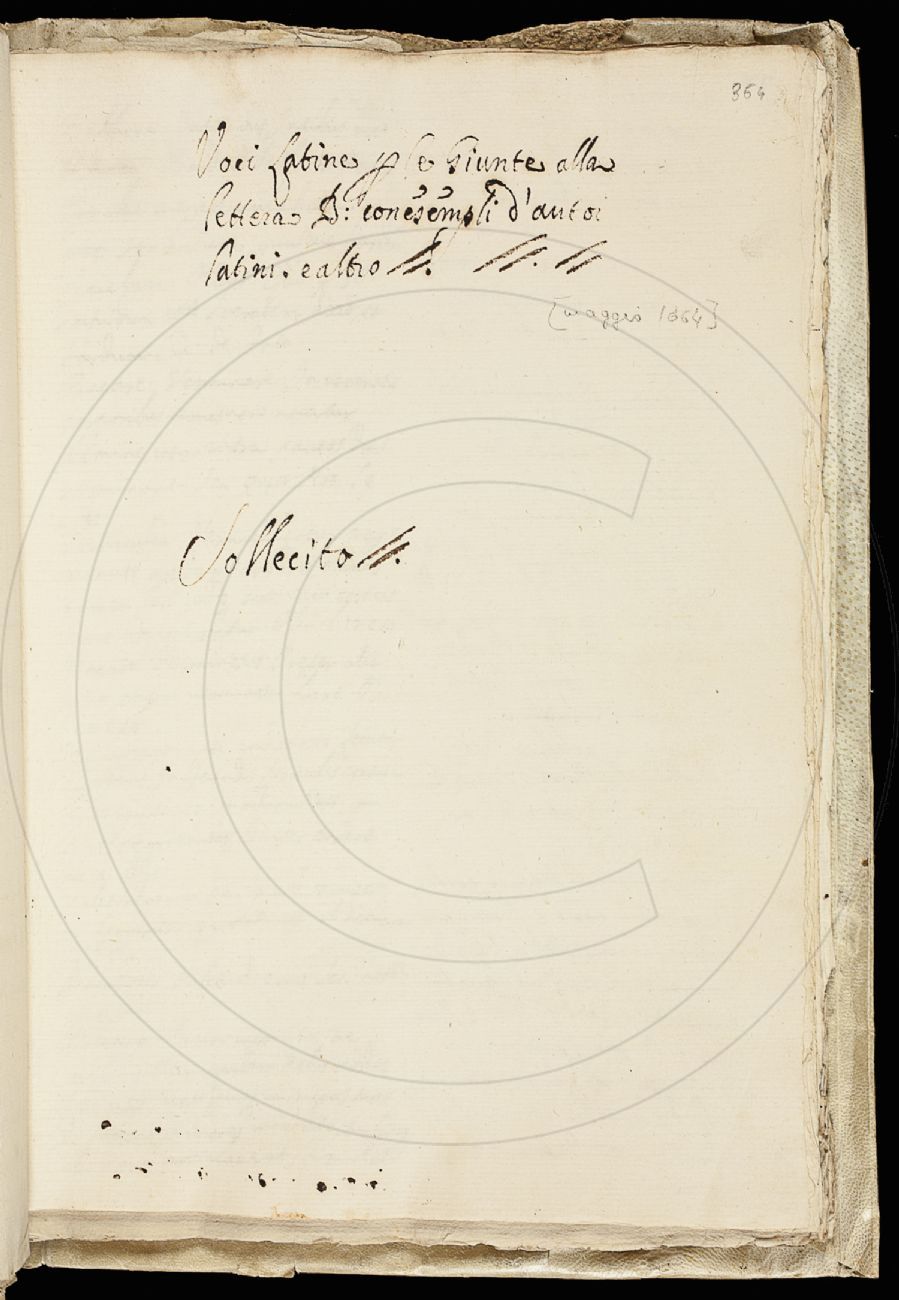 364
Voci Latine p le Giunte alla
lettera B: con esempli d'autoi
latini. e altro //. //. //
[maggio 1664]
Sollecito //.